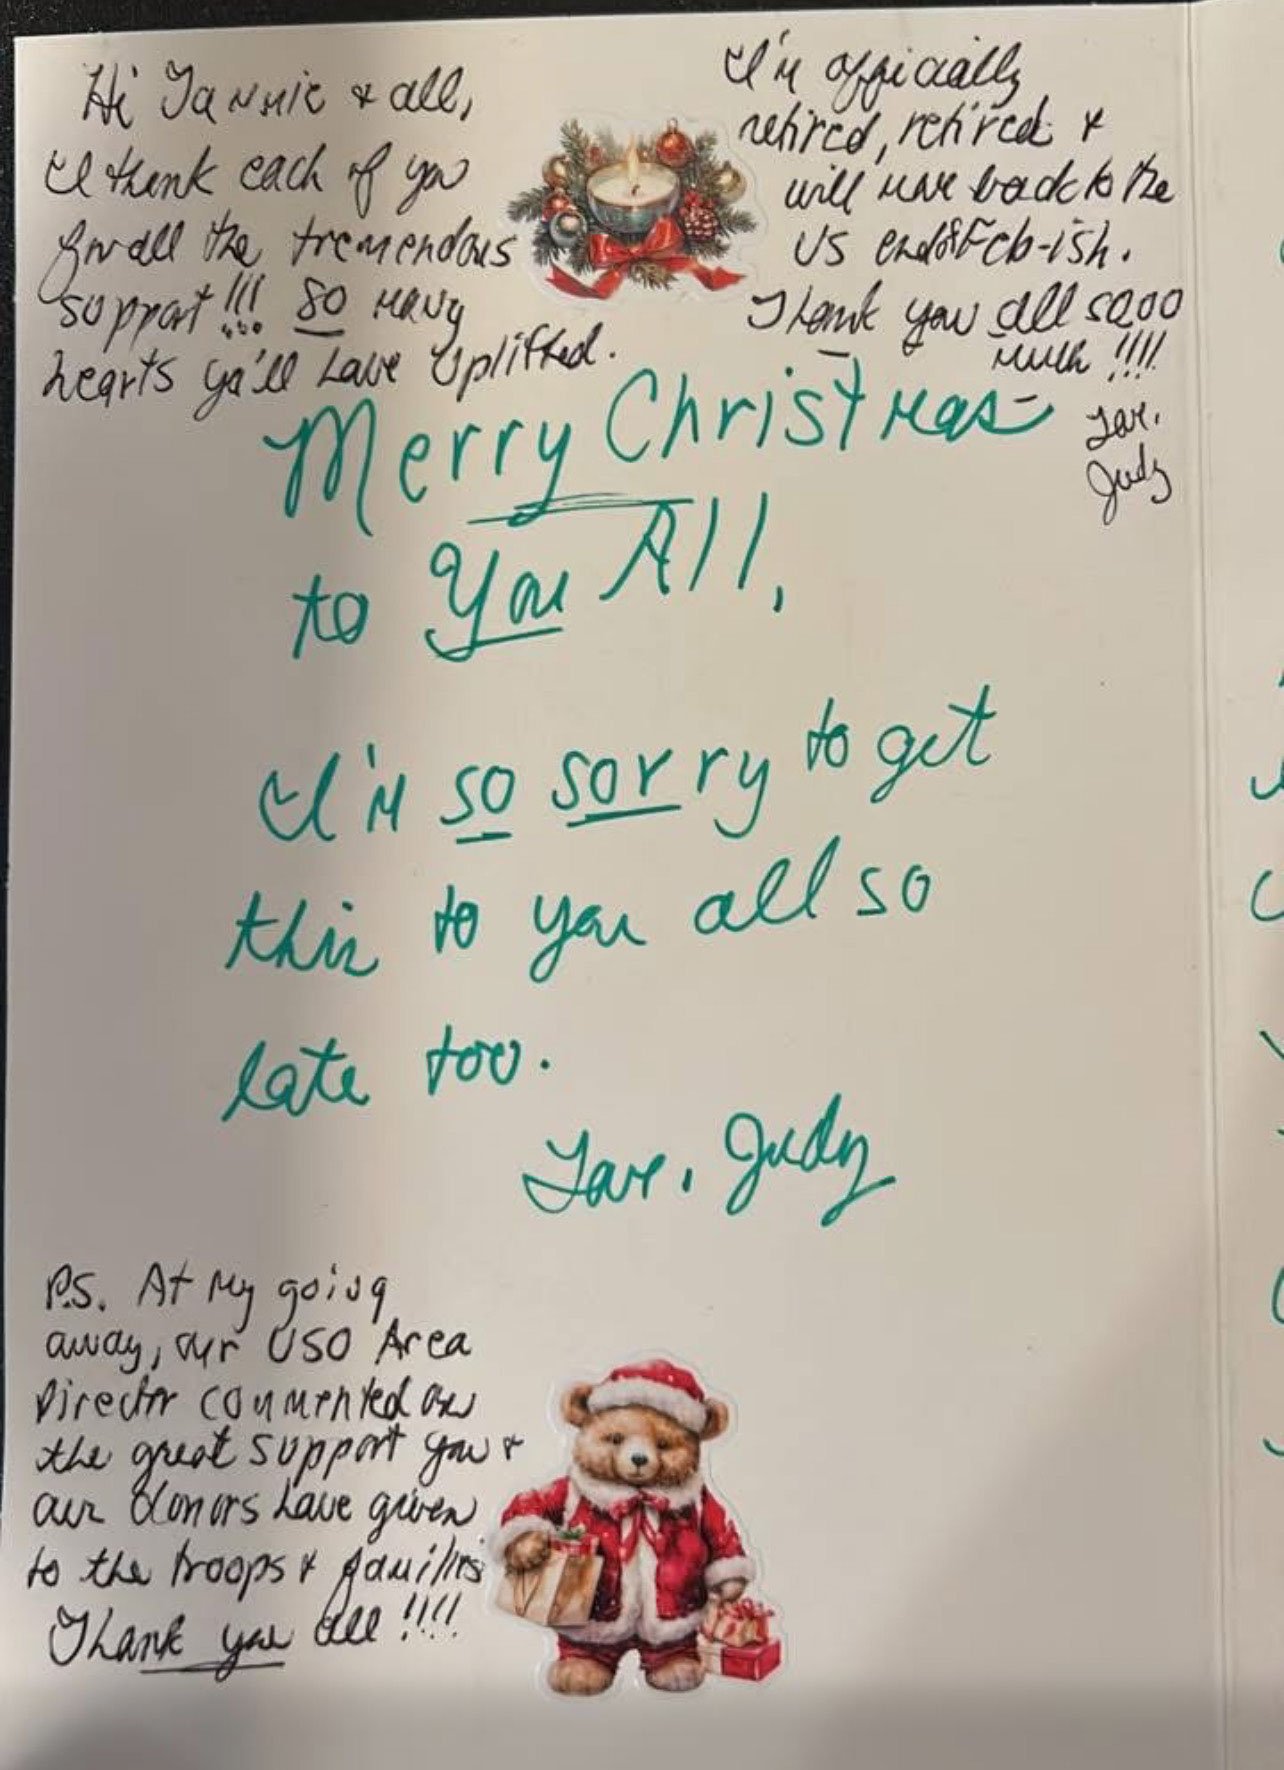 Hi Tammie & all,
I thank each of you
for all the tremendous
support!!! so many
hearts ya'll have uplifted.
I'm officially
retired, retired &
will move back to the
US end of Feb-ish.
Thank you all sooo
much!!!!
Love,
Judy
Merry Christmas
to You All,
I'm so sorry to get
this to you all so
late too.
Love, Judy
P.S. At my going
away, our USO Area
Director commented on
the great support you &
our donors have given
to the troops & families
Thank you all!!!!